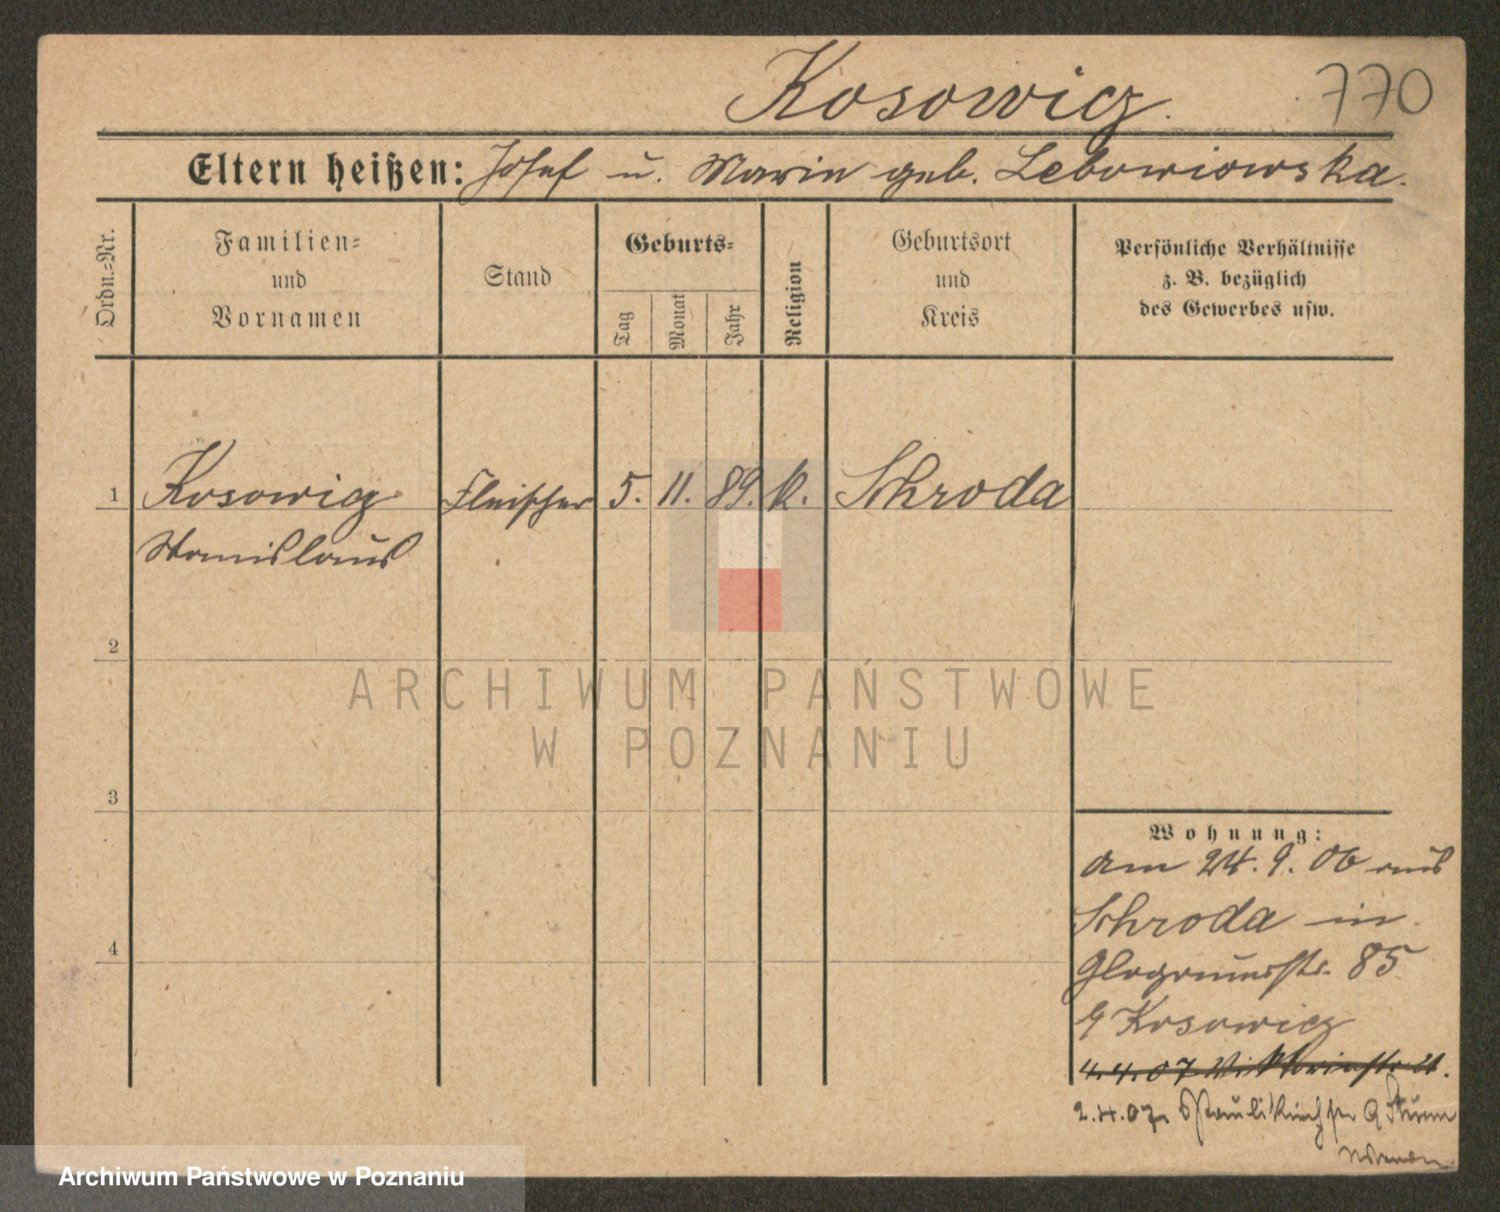 Kosowicz. 770
Eltern heißen: Josef u. Maria geb. Lebowiowska.
Ordn.=Nr.
Familien=
und
Vornamen
Stand
Geburts=
Tag
Monat
Jahr
Religion
Geburtsort
und
Kreis
Persönliche Verhältnisse
z. B. bezüglich
des Gewerbes usw.
1 Kosowicz Fleischer 5. 11. 89. k. Schroda
Stanislaus
2
3
4
Wohnung:
am 24. 9. 06 aus
Schroda in
Glogauerstr. 85
Kosowicz
4.4.07 Viktoriastr.
2.4.07
ARCHIWUM PAŃSTWOWE
W POZNANIU
Archiwum Państwowe w Poznaniu